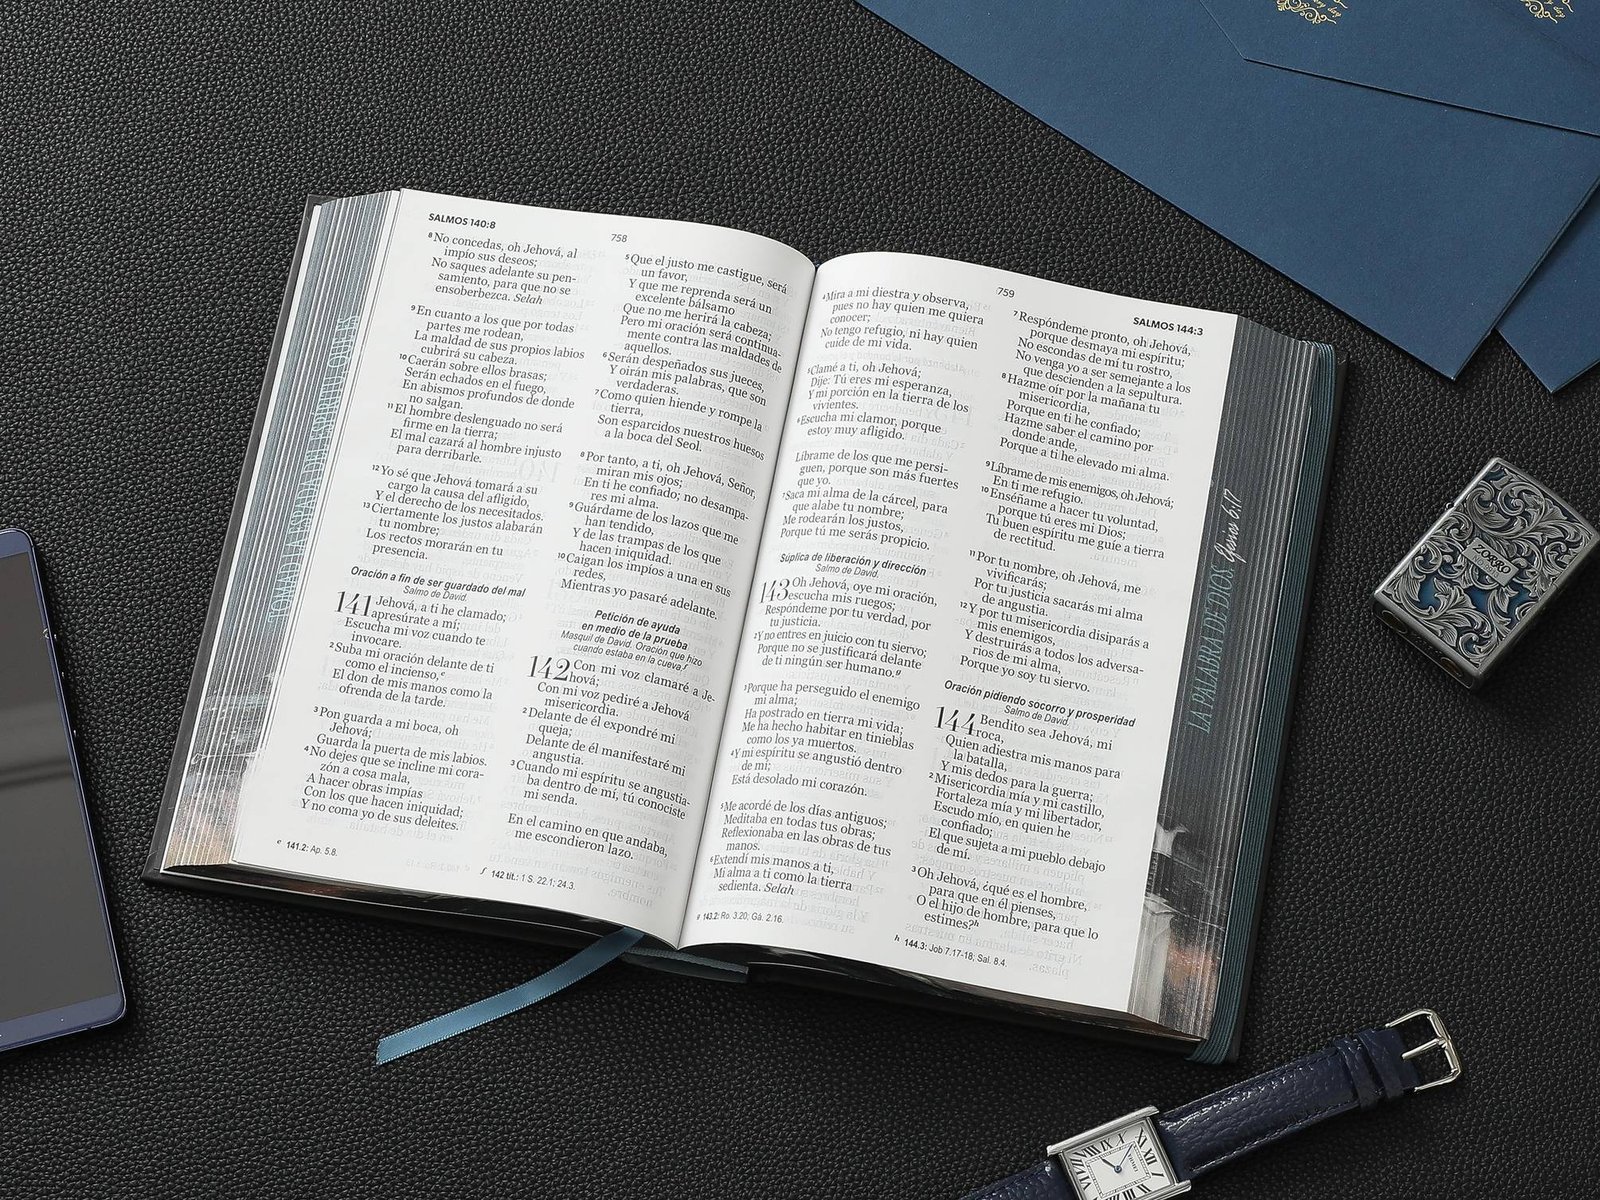 SALMOS 140:8
758
⁸No concedas, oh Jehová, al
impío sus deseos;
No saques adelante su pen-
samiento, para que no se
ensoberbezca. Selah
⁹En cuanto a los que por todas
partes me rodean,
La maldad de sus propios labios
cubrirá su cabeza.
¹⁰Caerán sobre ellos brasas;
Serán echados en el fuego,
En abismos profundos de donde
no salgan.
¹¹El hombre deslenguado no será
firme en la tierra;
El mal cazará al hombre injusto
para derribarle.
¹²Yo sé que Jehová tomará a su
cargo la causa del afligido,
Y el derecho de los necesitados.
¹³Ciertamente los justos alabarán
tu nombre;
Los rectos morarán en tu
presencia.
Oración a fin de ser guardado del mal
Salmo de David.
141 Jehová, a ti he clamado;
apresúrate a mí;
Escucha mi voz cuando te
invocare.
²Suba mi oración delante de ti
como el incienso,ᵉ
El don de mis manos como la
ofrenda de la tarde.
³Pon guarda a mi boca, oh
Jehová;
Guarda la puerta de mis labios.
⁴No dejes que se incline mi cora-
zón a cosa mala,
A hacer obras impías
Con los que hacen iniquidad;
Y no coma yo de sus deleites.
ᵉ 141.2: Ap. 5.8.
⁵Que el justo me castigue, será
un favor,
Y que me reprenda será un
excelente bálsamo
Que no me herirá la cabeza;
Pero mi oración será continua-
mente contra las maldades de
aquellos.
⁶Serán despeñados sus jueces,
Y oirán mis palabras, que son
verdaderas.
⁷Como quien hiende y rompe la
tierra,
Son esparcidos nuestros huesos
a la boca del Seol.
⁸Por tanto, a ti, oh Jehová, Señor,
miran mis ojos;
En ti he confiado; no desampa-
res mi alma.
⁹Guárdame de los lazos que me
han tendido,
Y de las trampas de los que
hacen iniquidad.
¹⁰Caigan los impíos a una en sus
redes,
Mientras yo pasaré adelante.
Petición de ayuda
en medio de la prueba
Masquil de David. Oración que hizo
cuando estaba en la cueva.ᶠ
142 Con mi voz clamaré a Je-
hová;
Con mi voz pediré a Jehová
misericordia.
²Delante de él expondré mi
queja;
Delante de él manifestaré mi
angustia.
³Cuando mi espíritu se angustia-
ba dentro de mí, tú conociste
mi senda.
En el camino en que andaba,
me escondieron lazo.
ᶠ 142 tít.: 1 S. 22.1; 24.3.
759
SALMOS 144:3
⁴Mira a mi diestra y observa,
pues no hay quien me quiera
conocer;
No tengo refugio, ni hay quien
cuide de mi vida.
⁵Clamé a ti, oh Jehová;
Dije: Tú eres mi esperanza,
Y mi porción en la tierra de los
vivientes.
⁶Escucha mi clamor, porque
estoy muy afligido.
Líbrame de los que me persi-
guen, porque son más fuertes
que yo.
⁷Saca mi alma de la cárcel, para
que alabe tu nombre;
Me rodearán los justos,
Porque tú me serás propicio.
Súplica de liberación y dirección
Salmo de David.
143 Oh Jehová, oye mi oración,
escucha mis ruegos;
Respóndeme por tu verdad, por
tu justicia.
²Y no entres en juicio con tu siervo;
Porque no se justificará delante
de ti ningún ser humano.ᵍ
³Porque ha perseguido el enemigo
mi alma;
Ha postrado en tierra mi vida;
Me ha hecho habitar en tinieblas
como los ya muertos.
⁴Y mi espíritu se angustió dentro
de mí;
Está desolado mi corazón.
⁵Me acordé de los días antiguos;
Meditaba en todas tus obras;
Reflexionaba en las obras de tus
manos.
⁶Extendí mis manos a ti,
Mi alma a ti como la tierra
sedienta. Selah
ᵍ 143.2: Ro. 3.20; Gá. 2.16.
⁷Respóndeme pronto, oh Jehová,
porque desmaya mi espíritu;
No escondas de mí tu rostro,
No venga yo a ser semejante a los
que descienden a la sepultura.
⁸Hazme oír por la mañana tu
misericordia,
Porque en ti he confiado;
Hazme saber el camino por
donde ande,
Porque a ti he elevado mi alma.
⁹Líbrame de mis enemigos, oh Jehová;
En ti me refugio.
¹⁰Enséñame a hacer tu voluntad,
porque tú eres mi Dios;
Tu buen espíritu me guíe a tierra
de rectitud.
¹¹Por tu nombre, oh Jehová, me
vivificarás;
Por tu justicia sacarás mi alma
de angustia.
¹²Y por tu misericordia disiparás a
mis enemigos,
Y destruirás a todos los adversa-
rios de mi alma,
Porque yo soy tu siervo.
Oración pidiendo socorro y prosperidad
Salmo de David.
144 Bendito sea Jehová, mi
roca,
Quien adiestra mis manos para
la batalla,
Y mis dedos para la guerra;
²Misericordia mía y mi castillo,
Fortaleza mía y mi libertador,
Escudo mío, en quien he
confiado;
El que sujeta a mi pueblo debajo
de mí.
³Oh Jehová, ¿qué es el hombre,
para que en él pienses,
O el hijo de hombre, para que lo
estimes?ʰ
ʰ 144.3: Job 7.17-18; Sal. 8.4.
LA PALABRA DE DIOS. 6:17
ZORRO